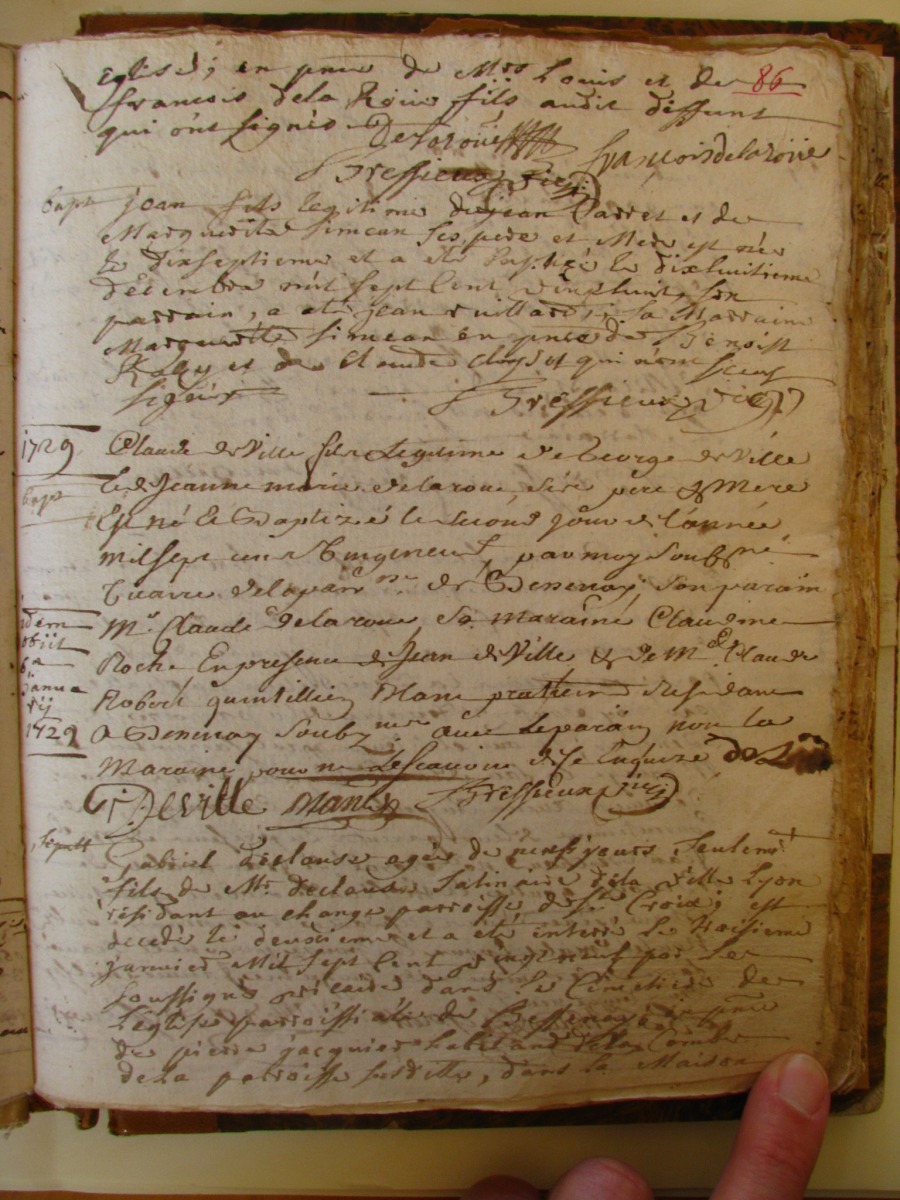 Eglise; en pnce de Mrs Louis et de 86
francois dela Roüe fils audit deffunt
qui ont signés Delaroüe francois delaroüe
Bressieux vic:
bapt jean fils legitime de jean Barret et de
Marguerite Simean ses pere et Mere est née
le dixseptieme et a eté baptizé le dixhuitieme
décembre mil sept cent vingthuit, son
parrain, a eté jean vuillard, sa Marraine
Marguerite Simean en pnce de Benoist
et de Claude qui n'ont sceus
signér Bressieux vic:
1729 Claude deville fils Legitime de George deville
bapt et de Jeanne marie delaroue, ses pere & Mere
Est né et Baptizé le second jour de l'année
mil sept cens vingt neuf, par moy soubsné
vicaire de la parr de Bessenay, son parain
idem Mr Claude delaroue, sa maraine Claudine
obiit
6a Roche En presence de Jean deville & de Mre Claude
janua
rij Robert quintillien Manc praticien residant
1729 a Bessenay soubznes avec le parain non la
Maraine pour ne le scavoir de ce Enquize
Deville manc Bressieux vic:
sepult Gabriel Declause agée de neuf jours seulemt
fils de Mr Declause Satinaire dela ville Lyon
residant au change parroisse de Ste Croix, est
decedé le deuxieme et a eté interré le troisieme
janvier Mil sept cent vingt neuf par le
soussigné vicaire dans le Cimetiere de
l'église parroissialle de Bessenay, en pnce
de pierre jacquier habitant dela Combe
dela parroisse susditte, dans la Maison